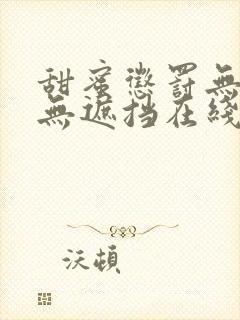 甜蜜懲罰無
無遮挡在綫
沃頓